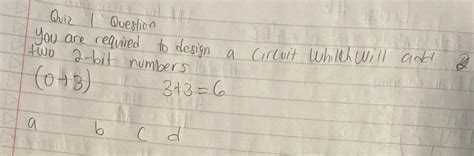 Quiz 1 Question
you are required to design a circuit which will add
two 2-bit numbers
(0→3) 3+3=6
a b c d